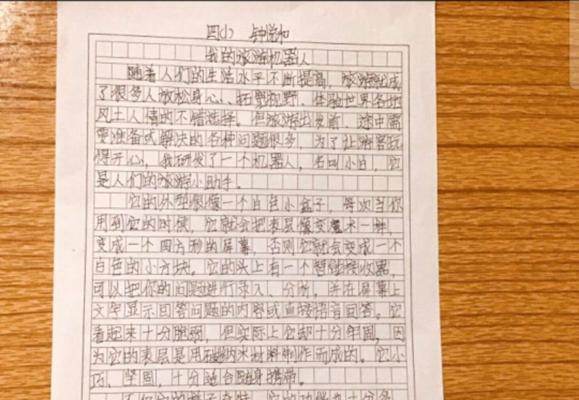 四(2) 钟悦和
我的旅游机器人
随着人们的生活水平不断提高，旅游就成
了很多人放松身心、拓宽视野、体验世界各地
风土人情的不错选择。但旅游出发前、途中需
要准备或解决的各种问题很多，为了让游客玩
得开心，我研发了一个机器人，名叫小白，它
是人们的旅游小助手。
它的外型很像一个白色小盒子，每次当你
用到它的时候，它就会把表层像变魔术一样，
变成一个四方形的屏幕，否则它就会变成一个
白色的小方块。它的头上有一个智能接收器，
可以把你的问题进行录入、分析，并在屏幕上
文字显示回答问题的内容或直接语音回答。它
看起来十分脆弱，但实际上它却十分牢固，因
为它的表层是用碳纳米材料制作而成的。它小
巧、坚固，十分适合随身携带。
不仅它的样子奇特，它的功能也十分多